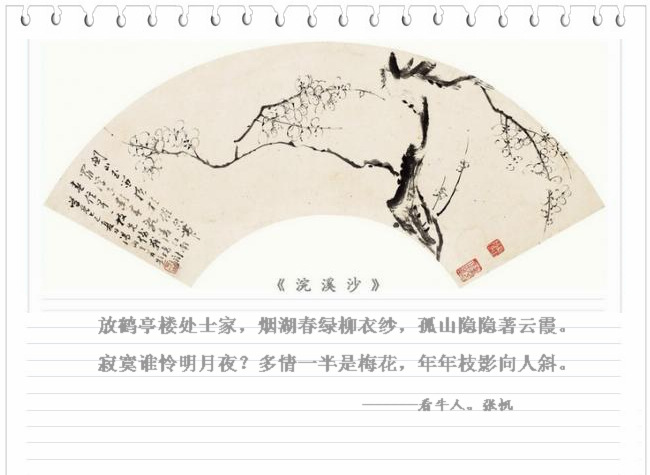 《浣溪沙》
放鹤亭楼处士家，烟湖春绿柳衣纱，孤山隐隐著云霞。
寂寞谁怜明月夜？多情一半是梅花，年年枝影向人斜。
————看牛人。张帆